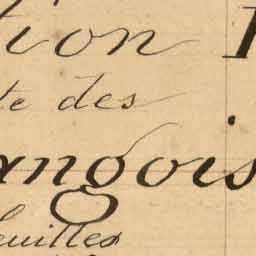 tion
te des
angois
euilles